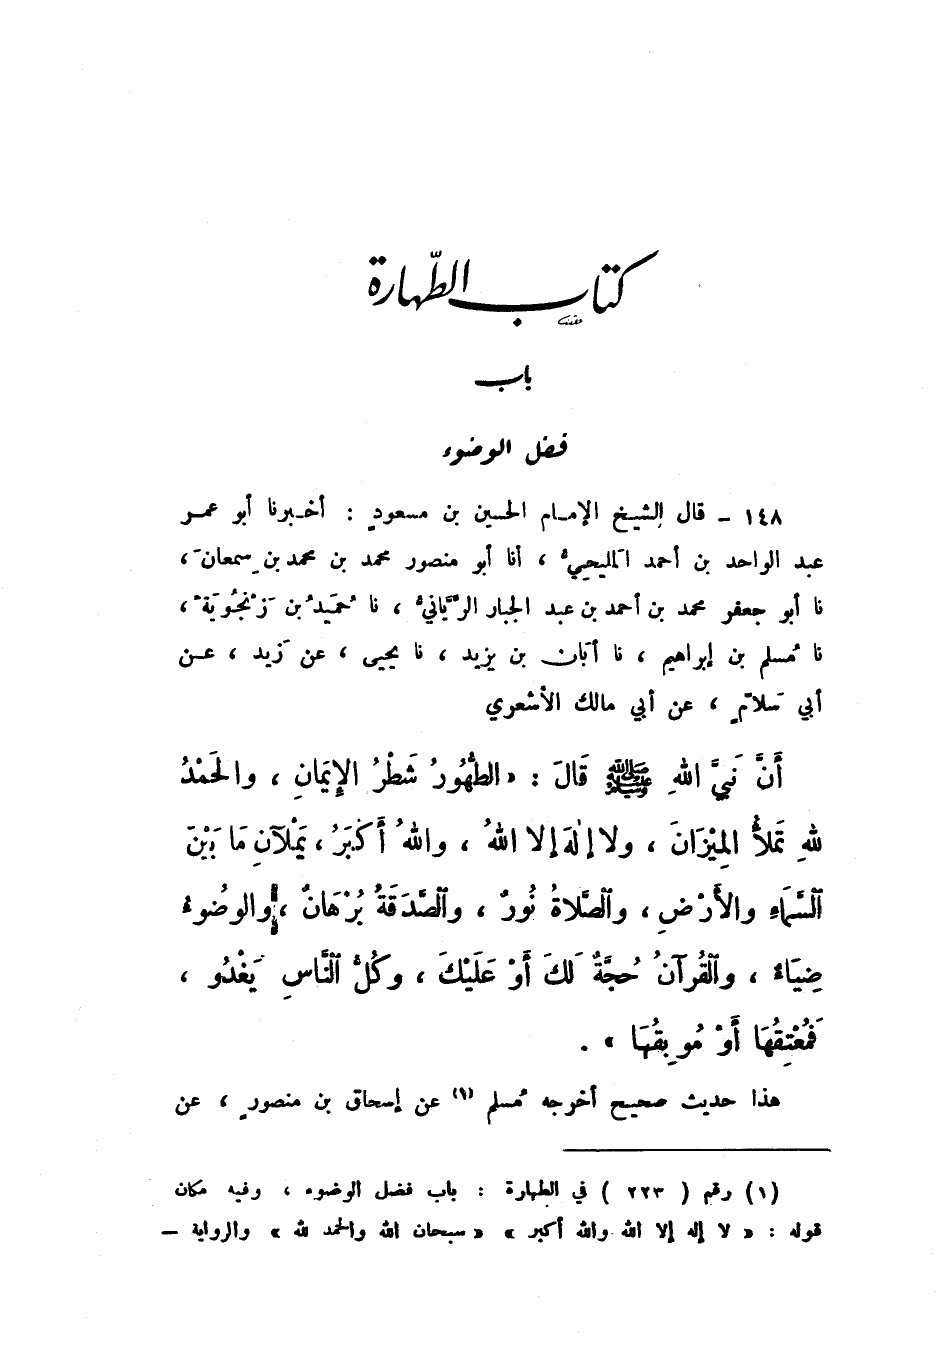 كتاب الطّهارة
باب
فضل الوضوء
١٤٨ ـ قال الشيخ الإمام الحسين بن مسعودٍ : أخبرنا أبو عمر
عبد الواحد بن أحمد المَليحيُّ ، أنا أبو منصور محمد بن محمد بن سِمعانَ ،
نا أبو جعفر محمد بن أحمد بن عبد الجبار الرَّيَّانيُّ ، نا حُمَيدُ بن زَنْجُويَةَ ،
نا مُسلم بن إبراهيم ، نا أبَان بن يزيد ، نا يحيى ، عن زَيد ، عن
أبي سَلاّمٍ ، عن أبي مالك الأشعري
أَنَّ نَبيَّ اللهِ ﷺ قَالَ : « الطُّهُورُ شَطْرُ الإِيَمَانِ ، والحَمْدُ
للهِ تَملأُ المِيْزَانَ ، ولا إلٰهَ إلا اللهُ ، واللهُ أَكبَرُ ، يَمْلآنِ مَا بَيْنَ
السَّمَاءِ والأَرْضِ ، والصَّلاةُ نُورٌ ، والصَّدَقَةُ بُرْهَانٌ ، والوضُوءُ
ضِيَاءٌ ، والقُرآنُ حُجَّةٌ لَكَ أَوْ عَلَيْكَ ، وكُلُّ النَّاسِ يَغْدُو ،
فَمُعْتِقُهَا أَوْ مُوبِقُهَا » .
هذا حديث صحيح أخرجه مُسلم (١) عن إسحاق بن منصورٍ ، عن
(١) رقم ( ٢٢٣ ) في الطهارة : باب فضل الوضوء ، وفيه مكان
قوله : « لا إله إلا الله والله أكبر » « سبحان الله والحمد لله » والرواية ـ